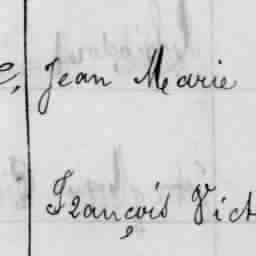 Jean Marie
François Vict